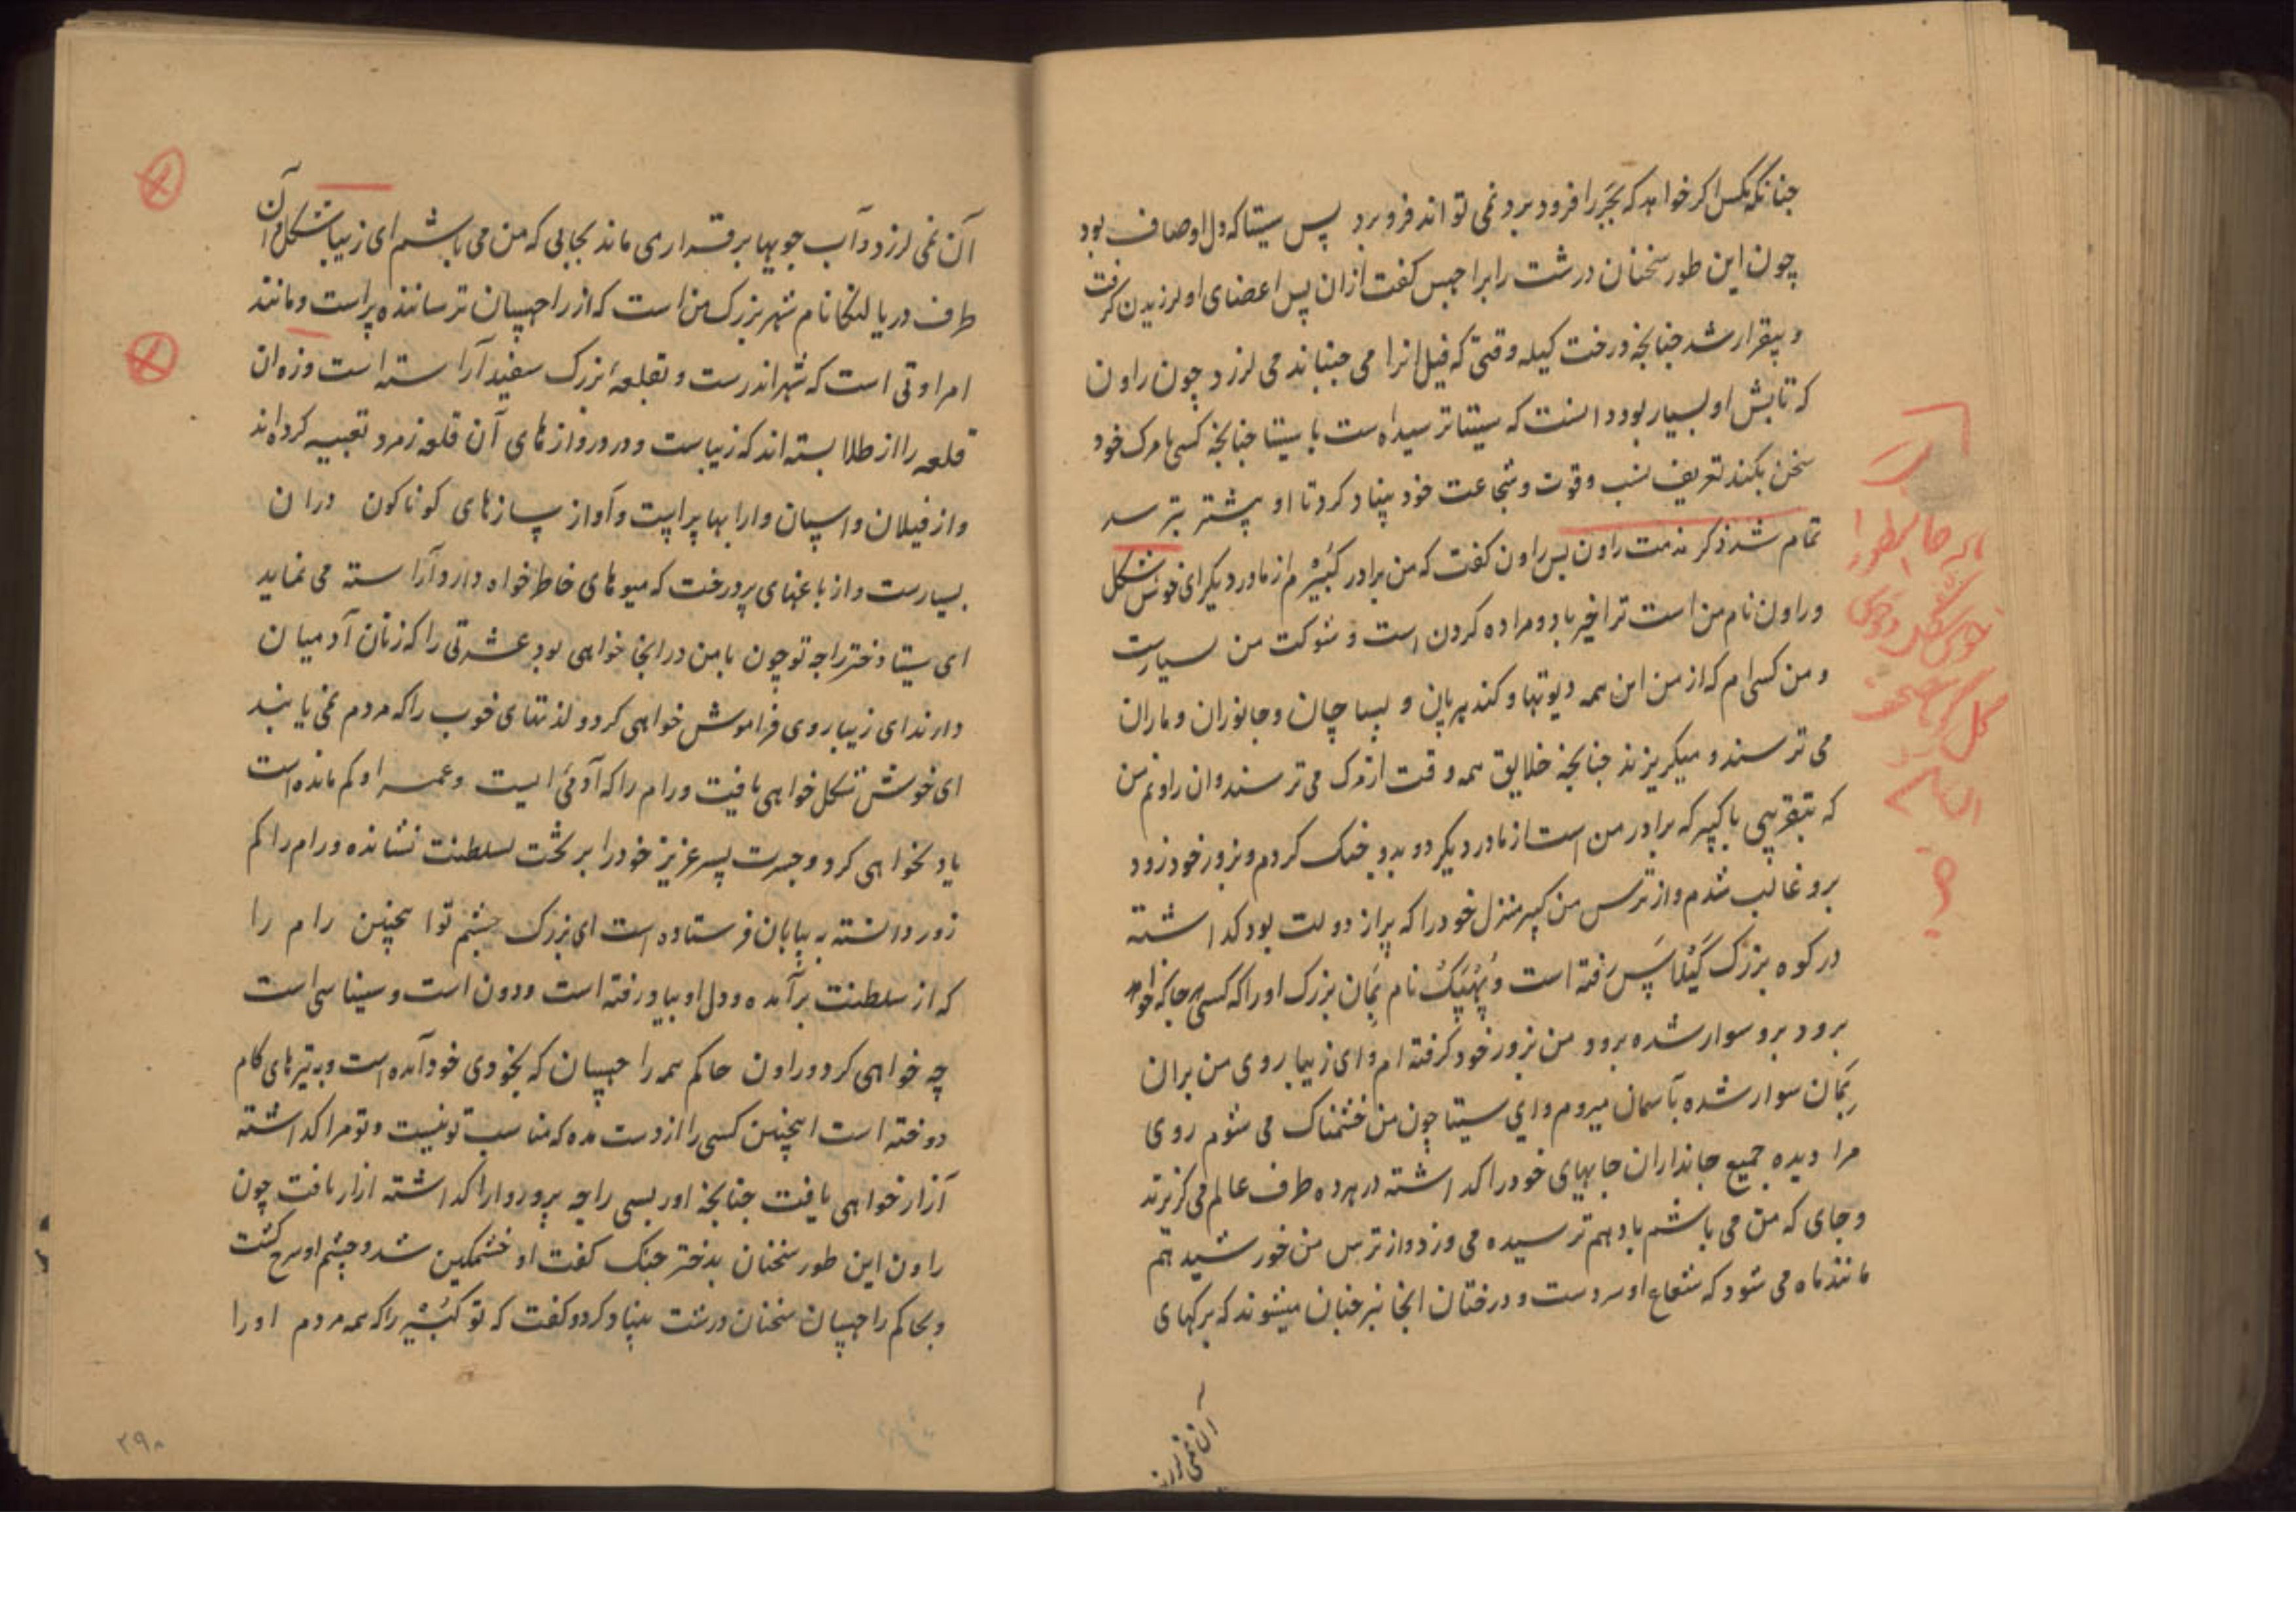 چنانکه مکس اکر خواهد که بجر را فرود برد نمی تواند فرو برد پس سیتا که دل او صاف بود
چون این طور سخنان درشت را براچهس کفت ازان پس اعضای او لرزیدن کرفت
و بیقرار شد چنانچه درخت کیله وقتی که فیل انرا می جنباند می لرزد چون راون
که تابش او بسیار بود دانست که سیتا ترسیده است با سیتا چنانچه کسی با مرک خود
سخن بکند تعریف نسب و قوت و شجاعت خود بنیاد کرد تا او بیشتر بترسد
تمام شد ذکر مذمت راون پس راون کفت که من برادر کبیرم از مادر دیکر ای خوش شکل
و راون نام من است ترا خیر باد و مراده کردن است و شوکت من بسیارست
و من کسی ام که از من این همه دیوتها و کندهربان و پساچان و جانوران و ماران
می ترسند و میکریزند چنانچه خلایق همه وقت از مرک می ترسند و ان راونم من
که بتقریبی با کبیر که برادر من است از مادر دیکر دو بدو جنک کردم و بزور خود زود
برو غالب شدم و از ترس من کبیر منزل خود را که پر از دولت بود کذاشته
در کوه بزرک کیلاس رفته است و پهپک نام بمان بزرک او را که کسی هر جا که خواهد
برود برو سوار شده برود من بزور خود کرفته ام و ای زیبا روی من بران
بمان سوار شده بآسمان میروم و ای سیتا چون من خشمناک می شوم روی
مرا دیده جمیع جانداران جایهای خود را کذاشته در هر ده طرف عالم می کریزند
و جای که من می باشم باد هم ترسیده می وزد و از ترس من خورشید هم
مانند ماه می شود که شعاع او سردست و درختان انجا نیز جنبان میشوند که برکهای
آن نمی لرزد
آن نمی لرزد و آب جویها برقرار می ماند بجایی که من می باشم ای زیبا شکل و آن
طرف دریا لنکا نام شهر بزرک من است که از راچهسان ترساننده پر است و مانند
امراوتی است که شهر اندرست و بقلعهٔ بزرک سفید آراسته است و زه ان
قلعه را از طلا بسته اند که زیباست و در دروازهای آن قلعه زمرد تعبیه کرده اند
و از فیلان و اسپان و ارابها پر است و آواز سازهای کوناکون دران
بسیارست و از باغهای پر درخت که میوهای خاطر خواه دارد آراسته می نماید
ای سیتا دختر راجه تو چون با من در انجا خواهی بود عشرتی را که زنان آدمیان
دارند ای زیبا روی فراموش خواهی کرد و لذتهای خوب را که مردم نمی یابند
ای خوش شکل خواهی یافت و رام را که آدمی است و عمر او کم مانده است
یاد نخواهی کرد و جسرت پسر عزیز خود را بر تخت سلطنت نشانده و رام را کم
زور دانسته به بیابان فرستاده است ای بزرک چشم تو اینچنین رام را
که از سلطنت برآمده و دل او بباد رفته است و دون است و سیناسی است
چه خواهی کرد و راون حاکم همه راچهسان که بخودی خود آمده است و به تیرهای کام
دوخته است اینچنین کسی را از دست مده که مناسب تو نیست و تو مرا کذاشته
آزار خواهی یافت چنانچه اوربسی راجه پروروا را کذاشته ازار یافت چون
راون این طور سخنان بدختر جنک کفت او خشمکین شد و چشم او سرخ کشت
و بحاکم راچهسان سخنان درشت بنیاد کرد و کفت که تو کبیر را که همه مردم او را
۲۹۸